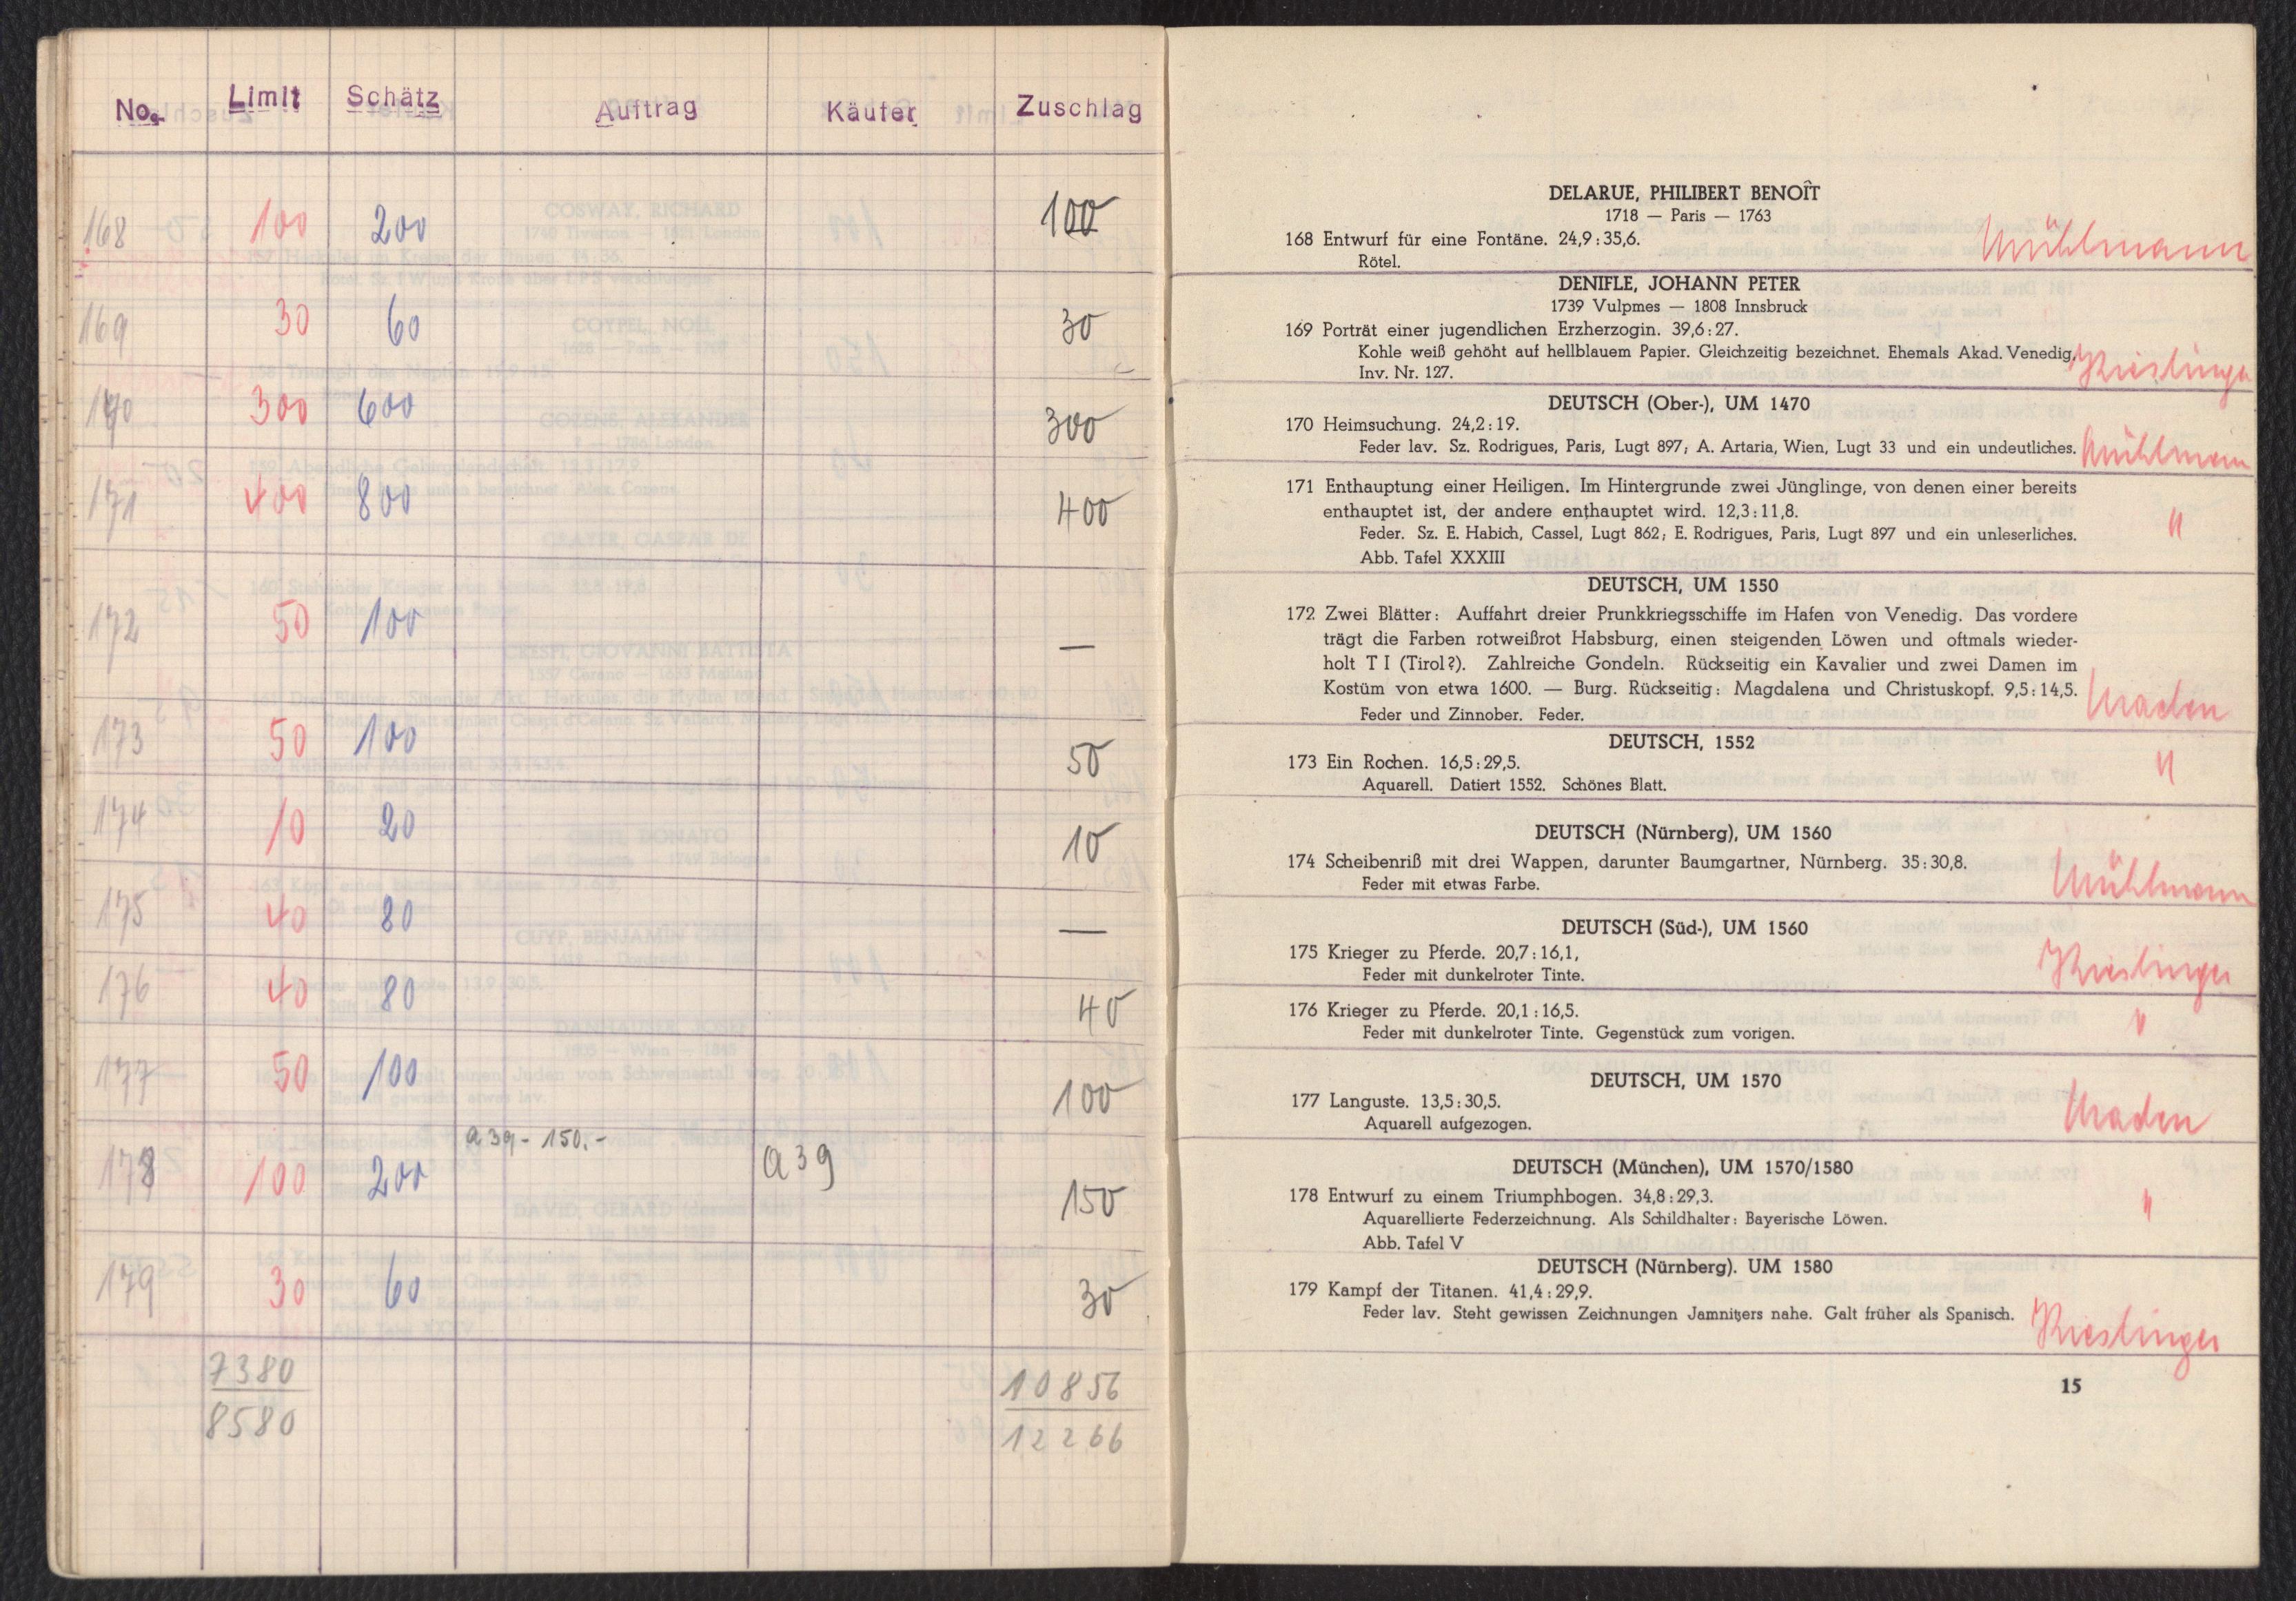 No. Limit Schätz Auftrag Käufer Zuschlag
168 100 200 100
169 30 60 30
170 300 600 300
171 400 800 400
172 50 100 —
173 50 100 50
174 10 20 10
175 40 80 —
176 40 80 40
177 50 100 100
178 100 200 a 39 - 150.- a 39 150
179 30 60 30
7380 10856
8580 12266
DELARUE, PHILIBERT BENOÎT
1718 — Paris — 1763
168 Entwurf für eine Fontäne. 24,9 : 35,6. Mühlmann
Rötel.
DENIFLE, JOHANN PETER
1739 Vulpmes — 1808 Innsbruck
169 Porträt einer jugendlichen Erzherzogin. 39,6 : 27.
Kohle weiß gehöht auf hellblauem Papier. Gleichzeitig bezeichnet. Ehemals Akad. Venedig,
Inv. Nr. 127. Kieslinger
DEUTSCH (Ober-), UM 1470
170 Heimsuchung. 24,2 : 19.
Feder lav. Sz. Rodrigues, Paris, Lugt 897; A. Artaria, Wien, Lugt 33 und ein undeutliches. Mühlmann
171 Enthauptung einer Heiligen. Im Hintergrunde zwei Jünglinge, von denen einer bereits
enthauptet ist, der andere enthauptet wird. 12,3 : 11,8. "
Feder. Sz. E. Habich, Cassel, Lugt 862; E. Rodrigues, Paris, Lugt 897 und ein unleserliches.
Abb. Tafel XXXIII
DEUTSCH, UM 1550
172 Zwei Blätter: Auffahrt dreier Prunkkriegsschiffe im Hafen von Venedig. Das vordere
trägt die Farben rotweißrot Habsburg, einen steigenden Löwen und oftmals wieder-
holt T I (Tirol?). Zahlreiche Gondeln. Rückseitig ein Kavalier und zwei Damen im
Kostüm von etwa 1600. — Burg. Rückseitig: Magdalena und Christuskopf. 9,5 : 14,5.
Feder und Zinnober. Feder.
DEUTSCH, 1552
173 Ein Rochen. 16,5 : 29,5. "
Aquarell. Datiert 1552. Schönes Blatt.
DEUTSCH (Nürnberg), UM 1560
174 Scheibenriß mit drei Wappen, darunter Baumgartner, Nürnberg. 35 : 30,8.
Feder mit etwas Farbe. Mühlmann
DEUTSCH (Süd-), UM 1560
175 Krieger zu Pferde. 20,7 : 16,1,
Feder mit dunkelroter Tinte. Kieslinger
176 Krieger zu Pferde. 20,1 : 16,5. "
Feder mit dunkelroter Tinte. Gegenstück zum vorigen.
DEUTSCH, UM 1570
177 Languste. 13,5 : 30,5.
Aquarell aufgezogen.
DEUTSCH (München), UM 1570/1580
178 Entwurf zu einem Triumphbogen. 34,8 : 29,3. "
Aquarellierte Federzeichnung. Als Schildhalter: Bayerische Löwen.
Abb. Tafel V
DEUTSCH (Nürnberg). UM 1580
179 Kampf der Titanen. 41,4 : 29,9.
Feder lav. Steht gewissen Zeichnungen Jamnitzers nahe. Galt früher als Spanisch. Kieslinger
15